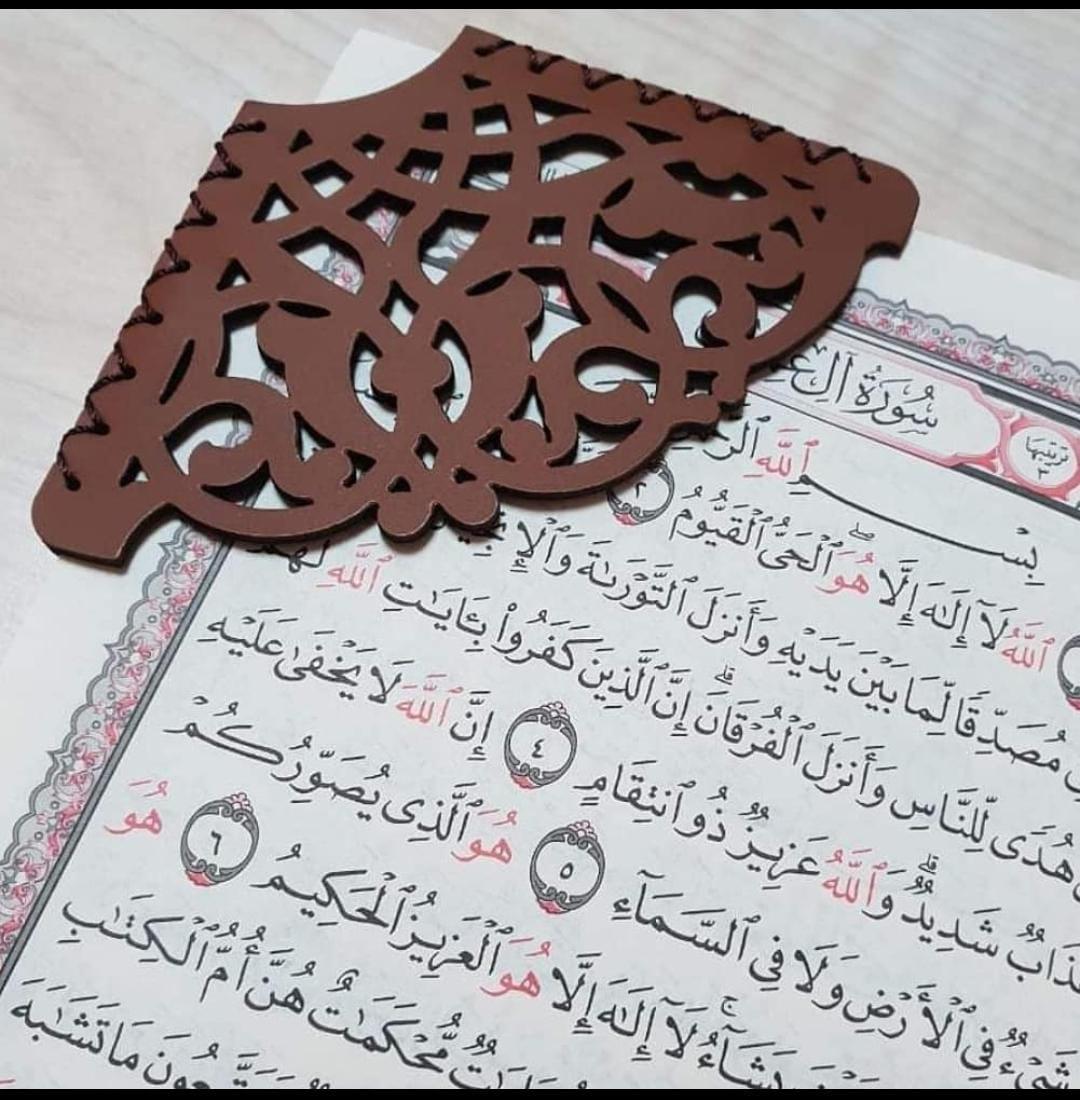 سُورَةُ آلِ
ترتيبها ٣
بِسْمِ ٱللَّهِ
ٱللَّهُ لَآ إِلَٰهَ إِلَّا هُوَ ٱلْحَىُّ ٱلْقَيُّومُ ٢
مُصَدِّقًا لِّمَا بَيْنَ يَدَيْهِ وَأَنزَلَ ٱلتَّوْرَىٰةَ
هُدًى لِّلنَّاسِ وَأَنزَلَ ٱلْفُرْقَانَ ۗ إِنَّ ٱلَّذِينَ كَفَرُوا۟ بِـَٔايَٰتِ ٱللَّهِ لَهُمْ
عَذَابٌ شَدِيدٌ ۗ وَٱللَّهُ عَزِيزٌ ذُو ٱنتِقَامٍ ٤ إِنَّ ٱللَّهَ لَا يَخْفَىٰ عَلَيْهِ
شَىْءٌ فِى ٱلْأَرْضِ وَلَا فِى ٱلسَّمَآءِ ٥ هُوَ ٱلَّذِى يُصَوِّرُكُمْ
يَشَآءُ ۚ لَآ إِلَٰهَ إِلَّا هُوَ ٱلْعَزِيزُ ٱلْحَكِيمُ ٦ هُوَ
مُّحْكَمَٰتٌ هُنَّ أُمُّ ٱلْكِتَٰبِ
مَا تَشَٰبَهَ